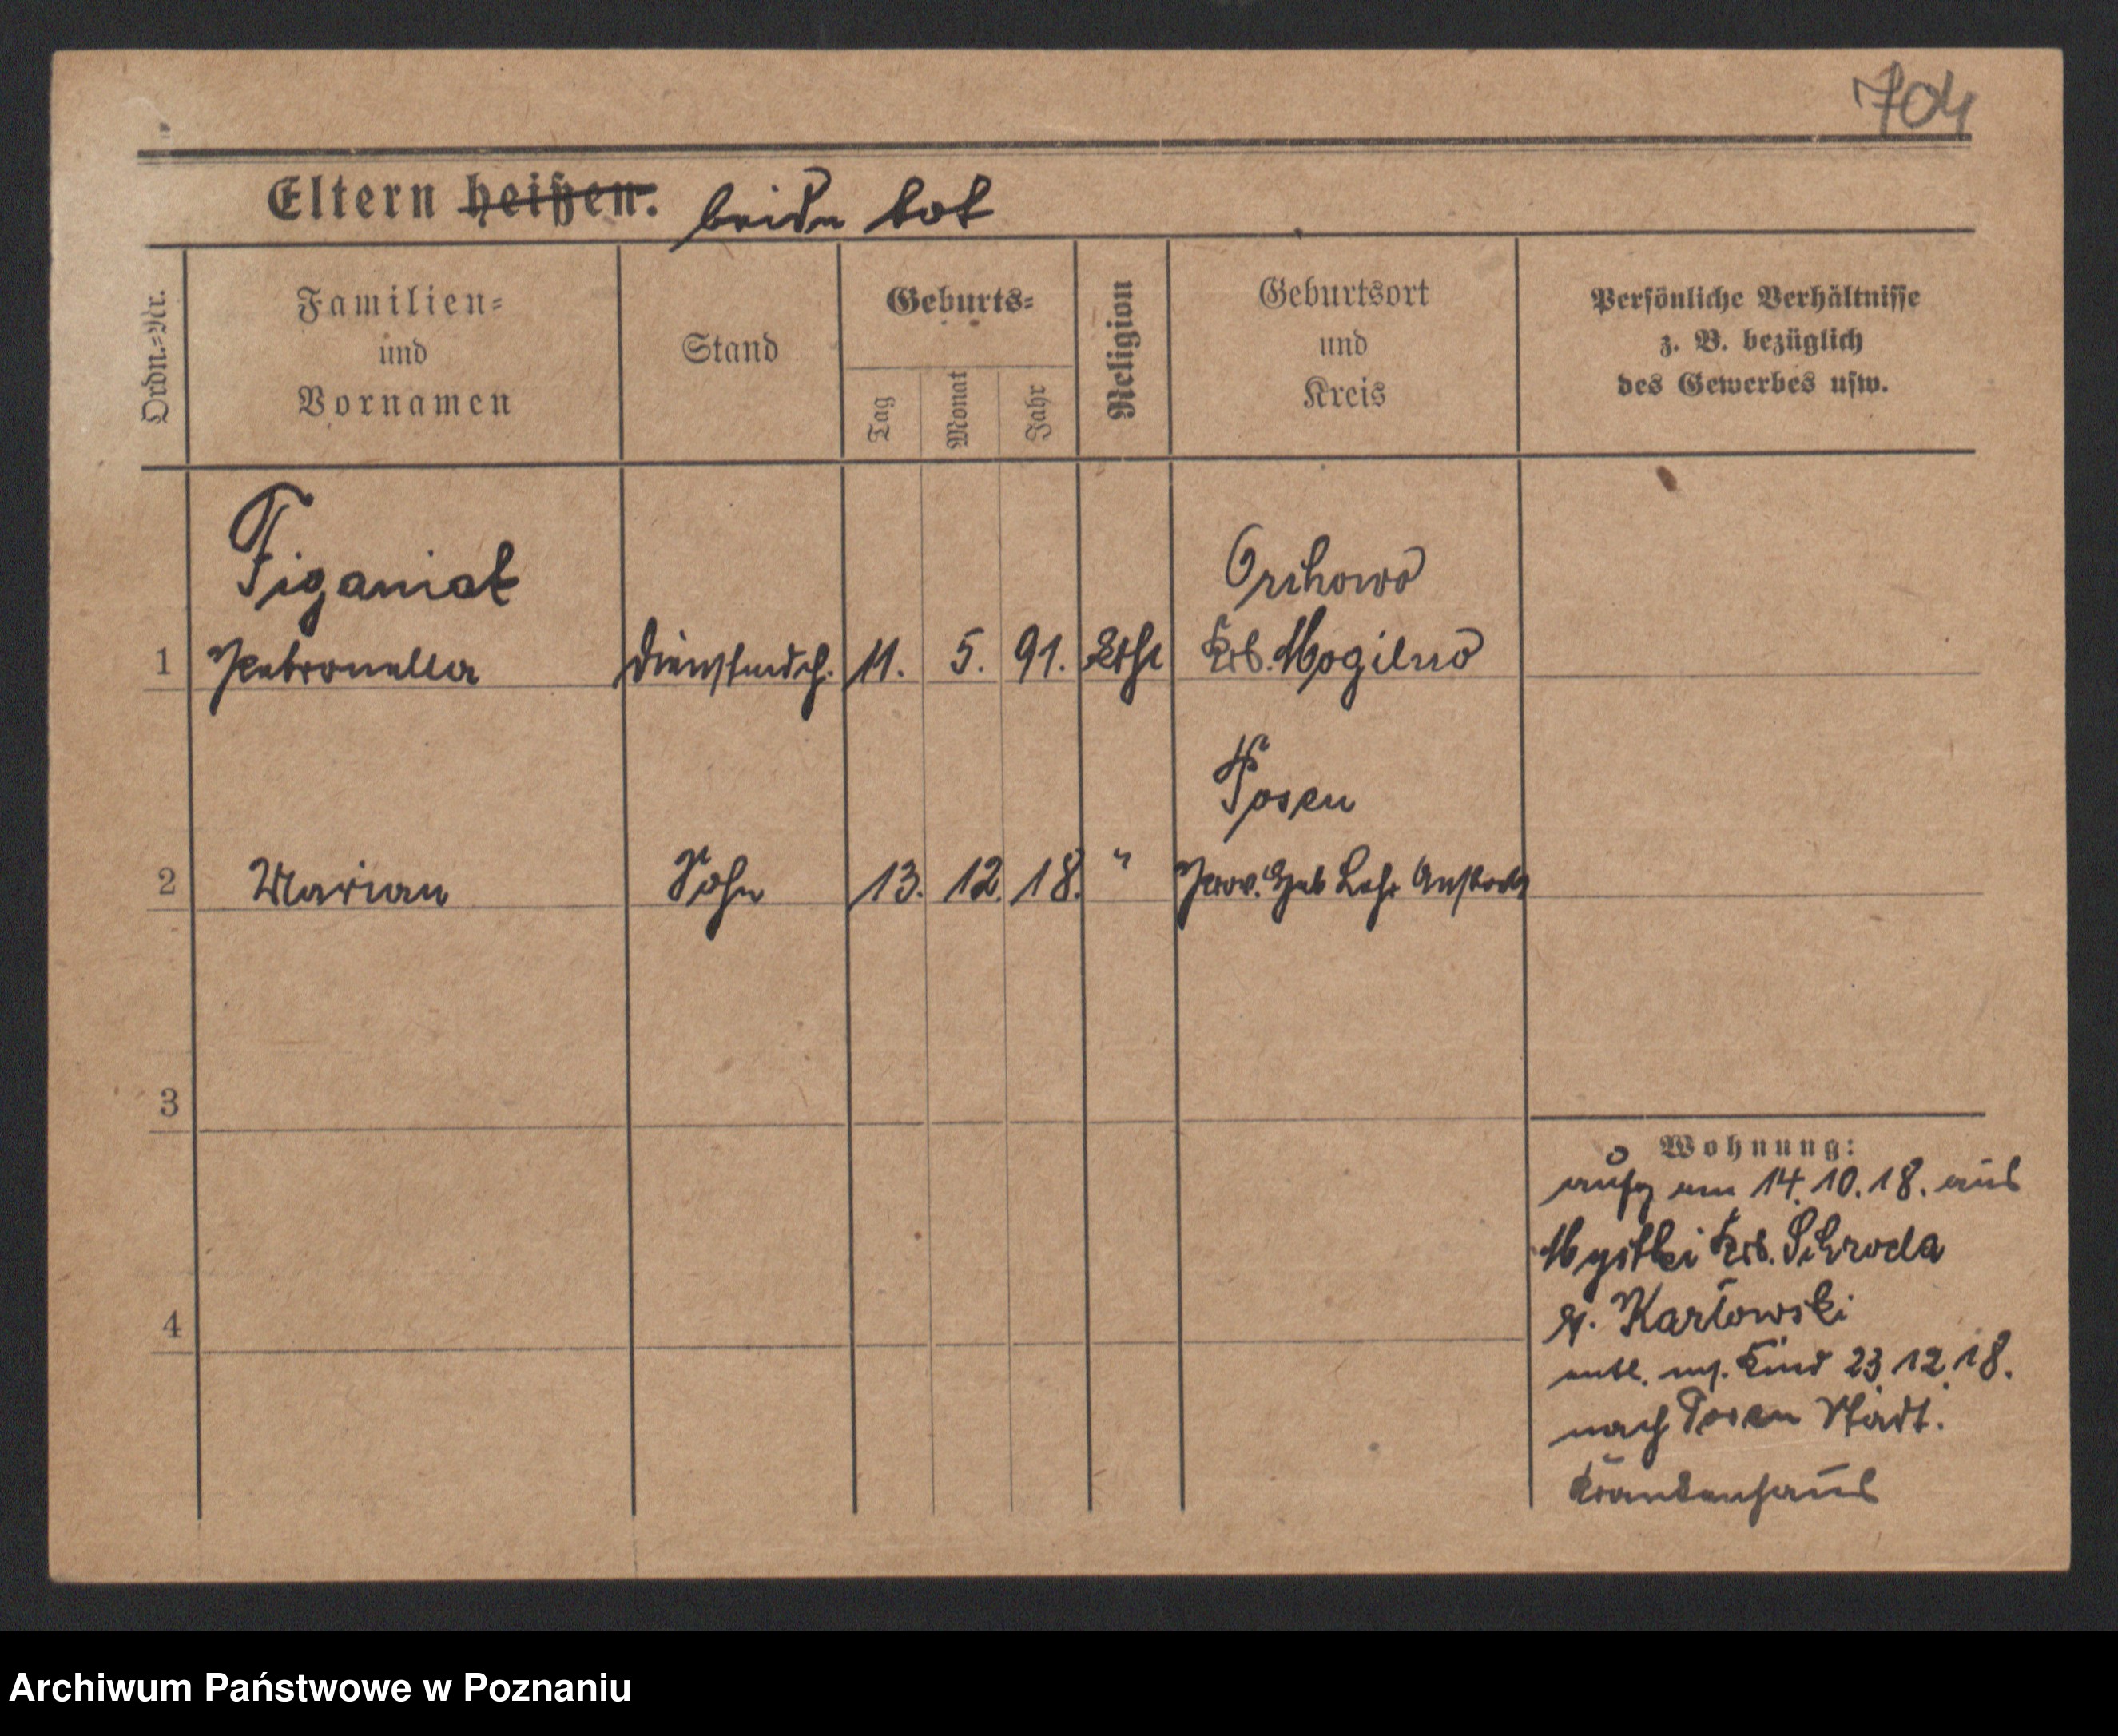 704
Eltern heißen. beide tot
Ordn.=Nr.
Familien=
und
Vornamen
Stand
Geburts=
Tag
Monat
Jahr
Religion
Geburtsort
und
Kreis
Persönliche Verhältnisse
z. B. bezüglich
des Gewerbes usw.
Figaniak
Orchowo
1 Petronella Dienstmdch. 11. 5. 91. kth Krs. Mogilno
Posen
2 Marian Sohn 13. 12. 18. " Prov. Heb Lehr Anstalt
3
4
Wohnung:
aufg am 14.10.18. aus
Krs. Schroda
Karlowski
entl. m. Kind 23 12.18.
nach Posen Städt.
Krankenhaus
Archiwum Państwowe w Poznaniu